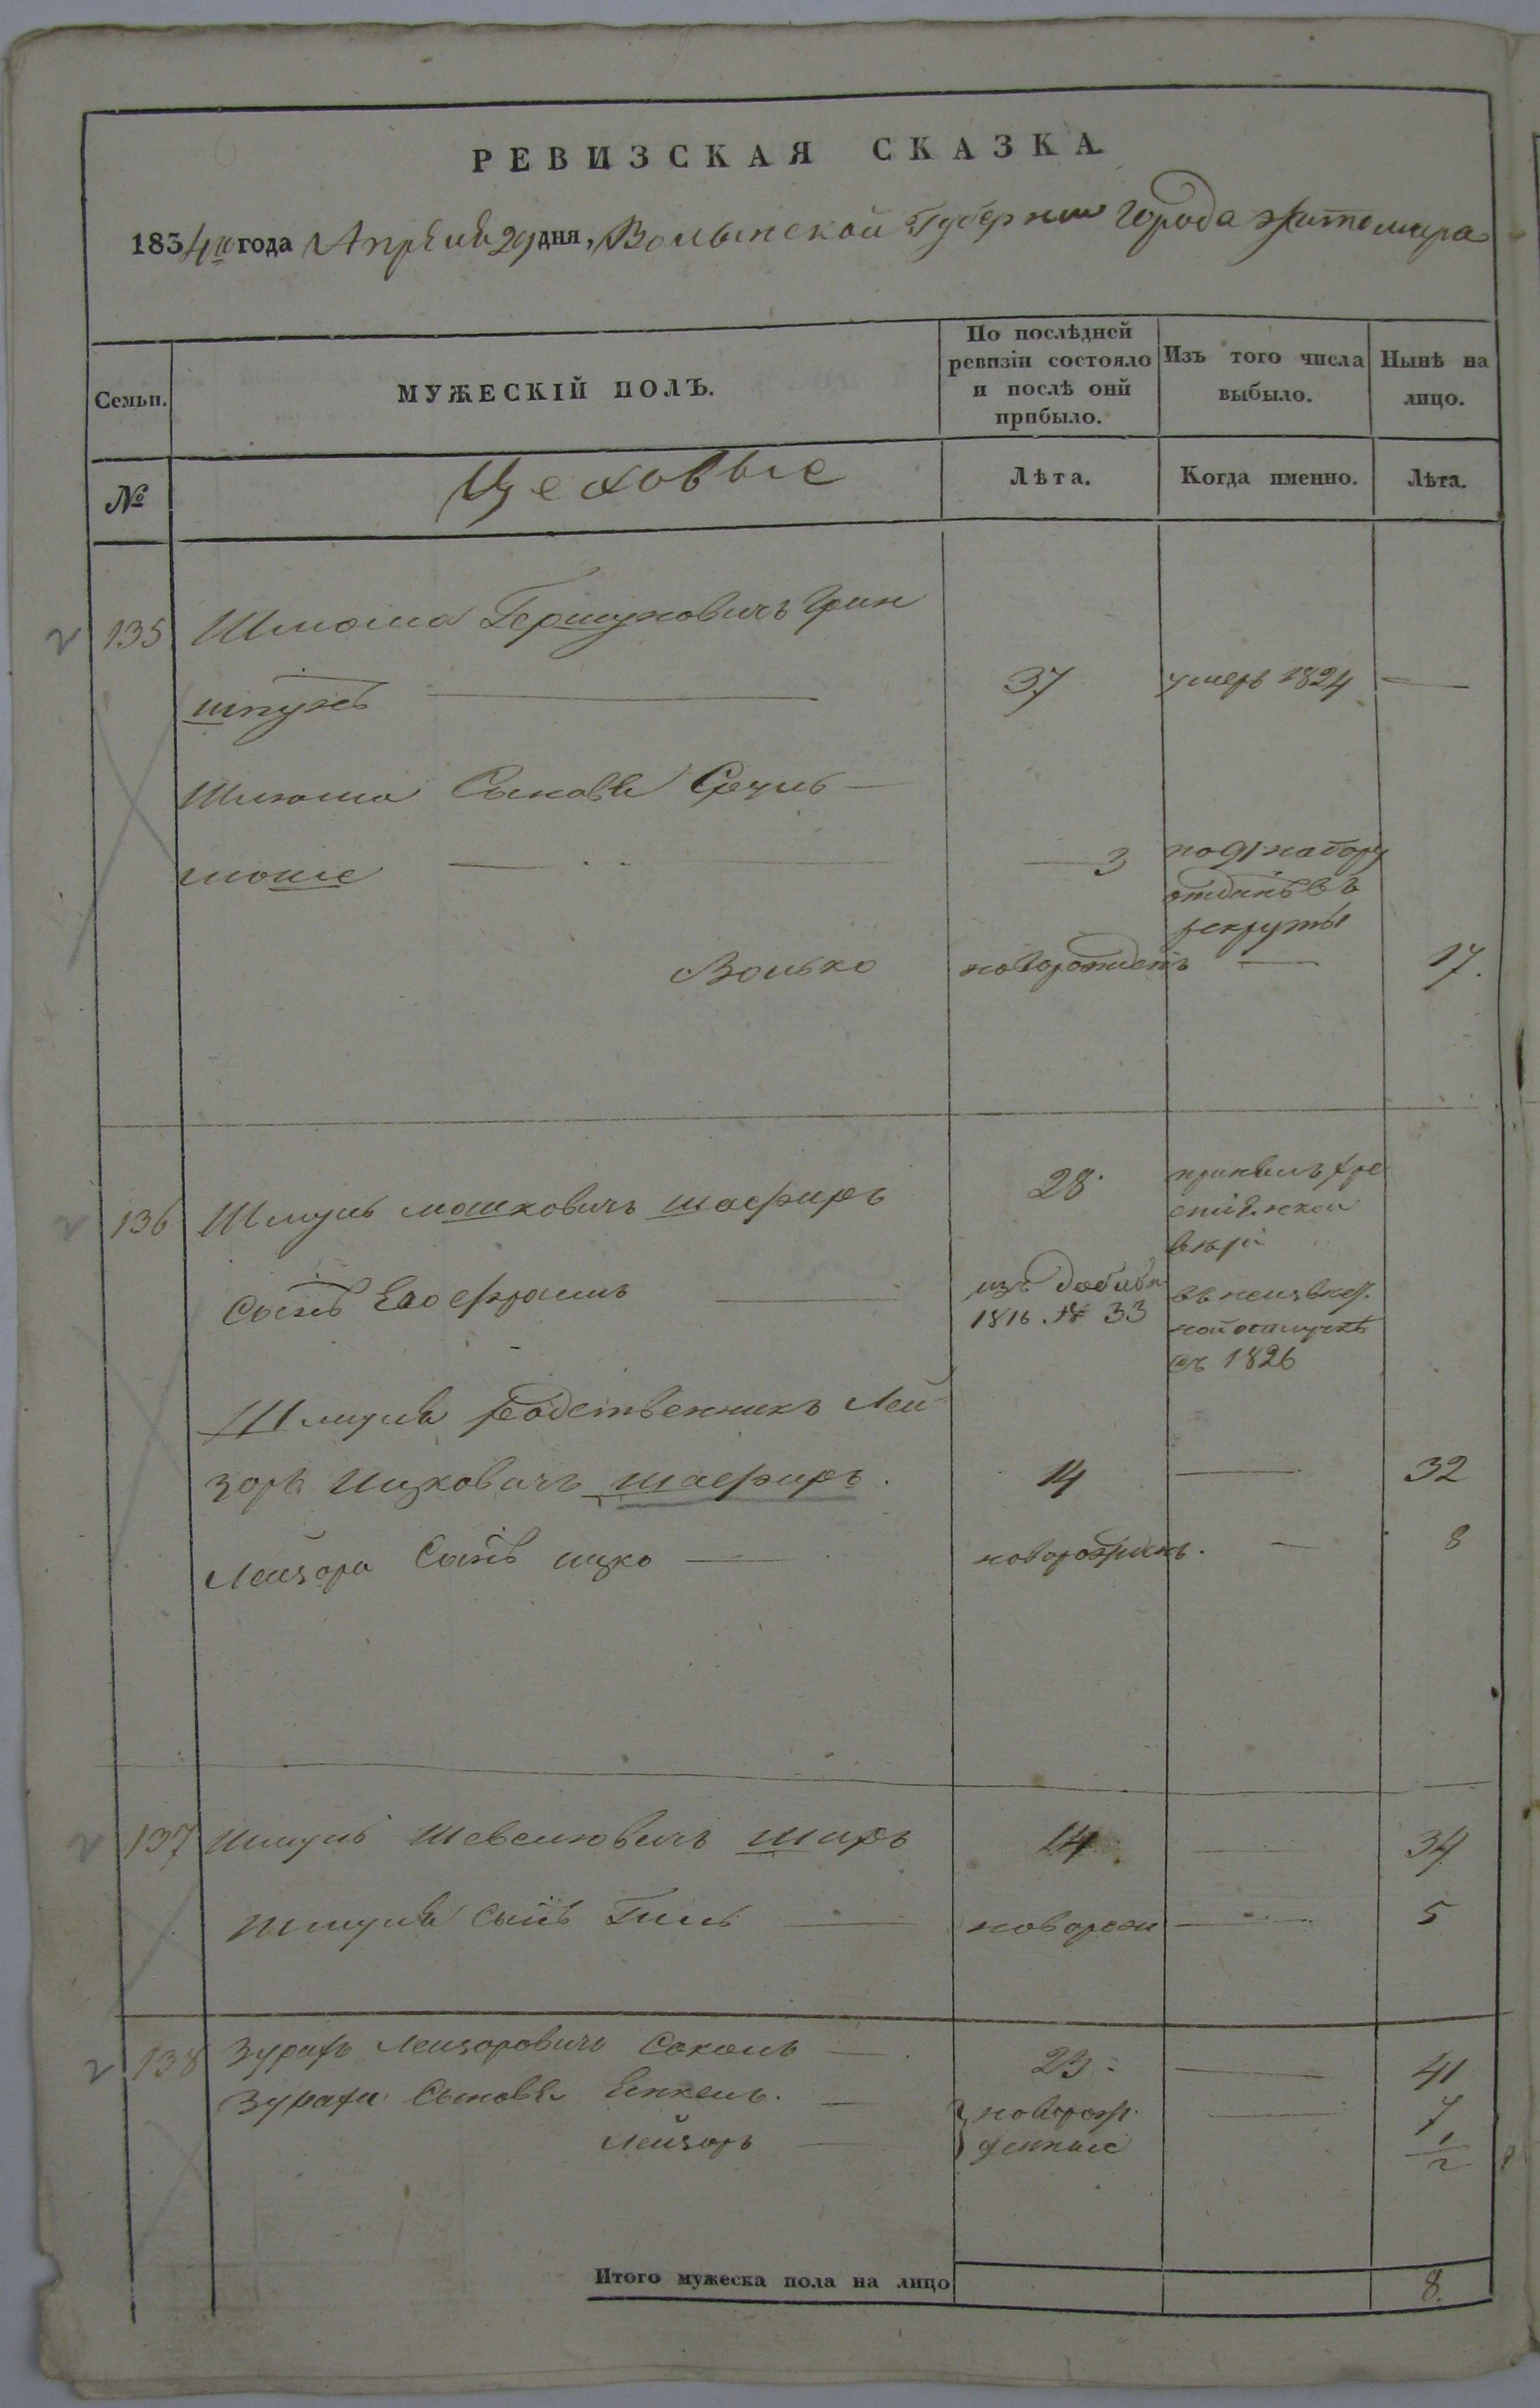 РЕВИЗСКАЯ СКАЗКА.
1834го года Апрѣля 29 дня, Волынской Губернии Города Житомира
Семьи.
МУЖЕСКІЙ ПОЛЪ.
По послѣдней ревизіи состояло и послѣ оній прибыло.
Изъ того числа выбыло.
Нынѣ на лицо.
№
Цеховые
Лѣта.
Когда именно.
Лѣта.
2 135 Шлиома Гершуновичъ Грин
шпунъ — 37 умеръ 1824 —
Шлиома Сыновья Сруль —
мошке — 3 по 91 набору
отданъ въ
рекруты
Волько новорожденъ — 17.
2 136 Шмуль мошковичъ шафиръ 28 принялъ хре
стіянскои
вѣри
Сынъ Его ефраимъ — изъ добавл
1816 № 33 въ неизвѣст
ной отлучкѣ
съ 1826
Шмуля родственникъ Леи
зоръ Ицковичъ шафиръ. 14 — 32
Леизора Сынъ ицко — новорожденъ. — 8
2 137 Шмуль Шевелиовичъ ширъ 14 — 34
Шмуля Сынъ Гиль — новорож — 5
2 138 Зурахъ Леизоровичъ Соколъ — 23 — 41
Зураха Сыновья Енкель. — новорож — 7
Лейзоръ — денные 1/2
Итого мужеска пола на лицо 8.